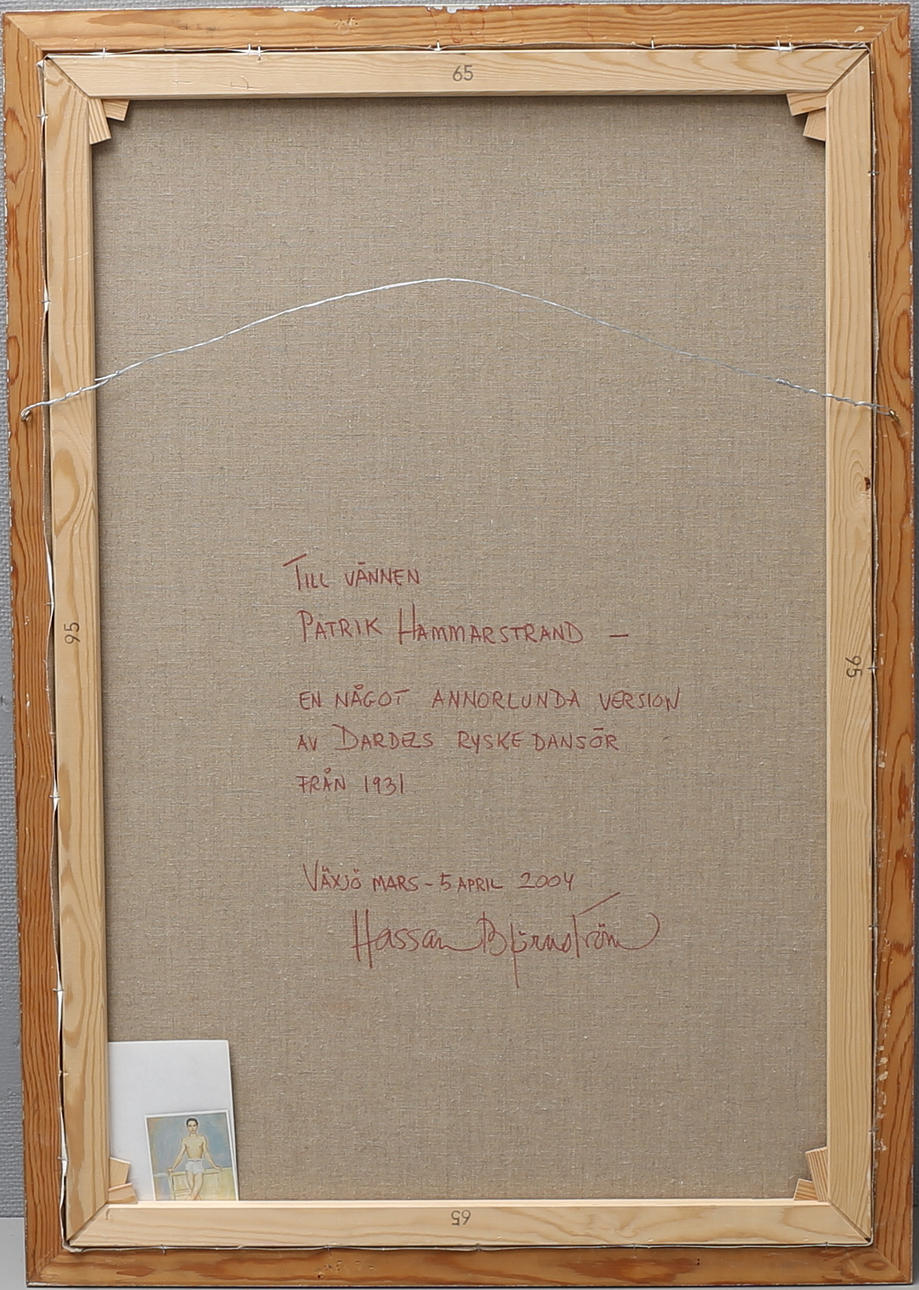 65
TILL VÄNNEN
PATRIK HAMMARSTRAND —
95
95
EN NÅGOT ANNORLUNDA VERSION
AV DARDELS RYSKE DANSÖR
FRÅN 1931
VÄXJÖ MARS - 5 APRIL 2004
Hassan Björnström
65